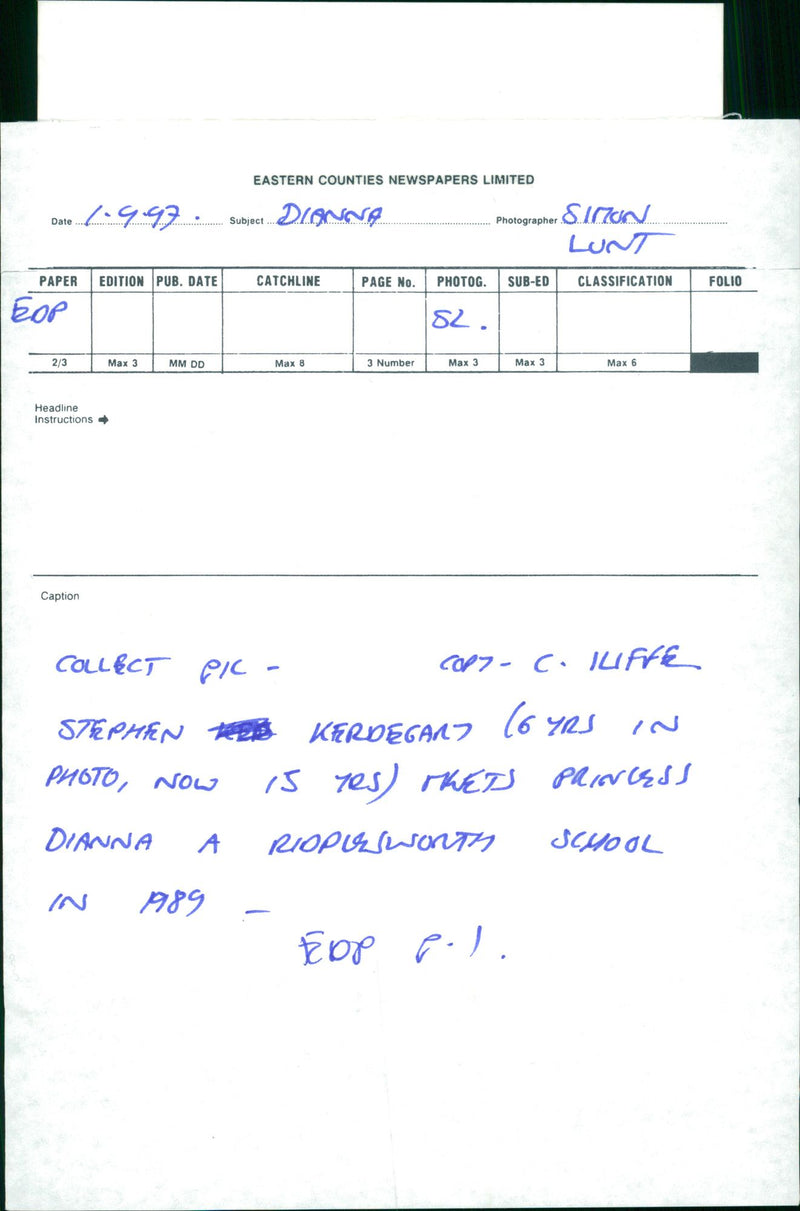 EASTERN COUNTIES NEWSPAPERS LIMITED
Date 1.9.97. Subject DIANNA Photographer SIMON
LUNT
PAPER EDITION PUB. DATE CATCHLINE PAGE No. PHOTOG. SUB-ED CLASSIFICATION FOLIO
EDP SL.
2/3 Max 3 MM DD Max 8 3 Number Max 3 Max 3 Max 6
Headline
Instructions
Caption
COLLECT PIC - COPY - C. ILIFFE
STEPHEN KERDEGARI (6 YRS IN
PHOTO, NOW 15 YRS) MEETS PRINCESS
DIANNA A RIDDLESWORTH SCHOOL
IN 1989 -
EDP P.1.